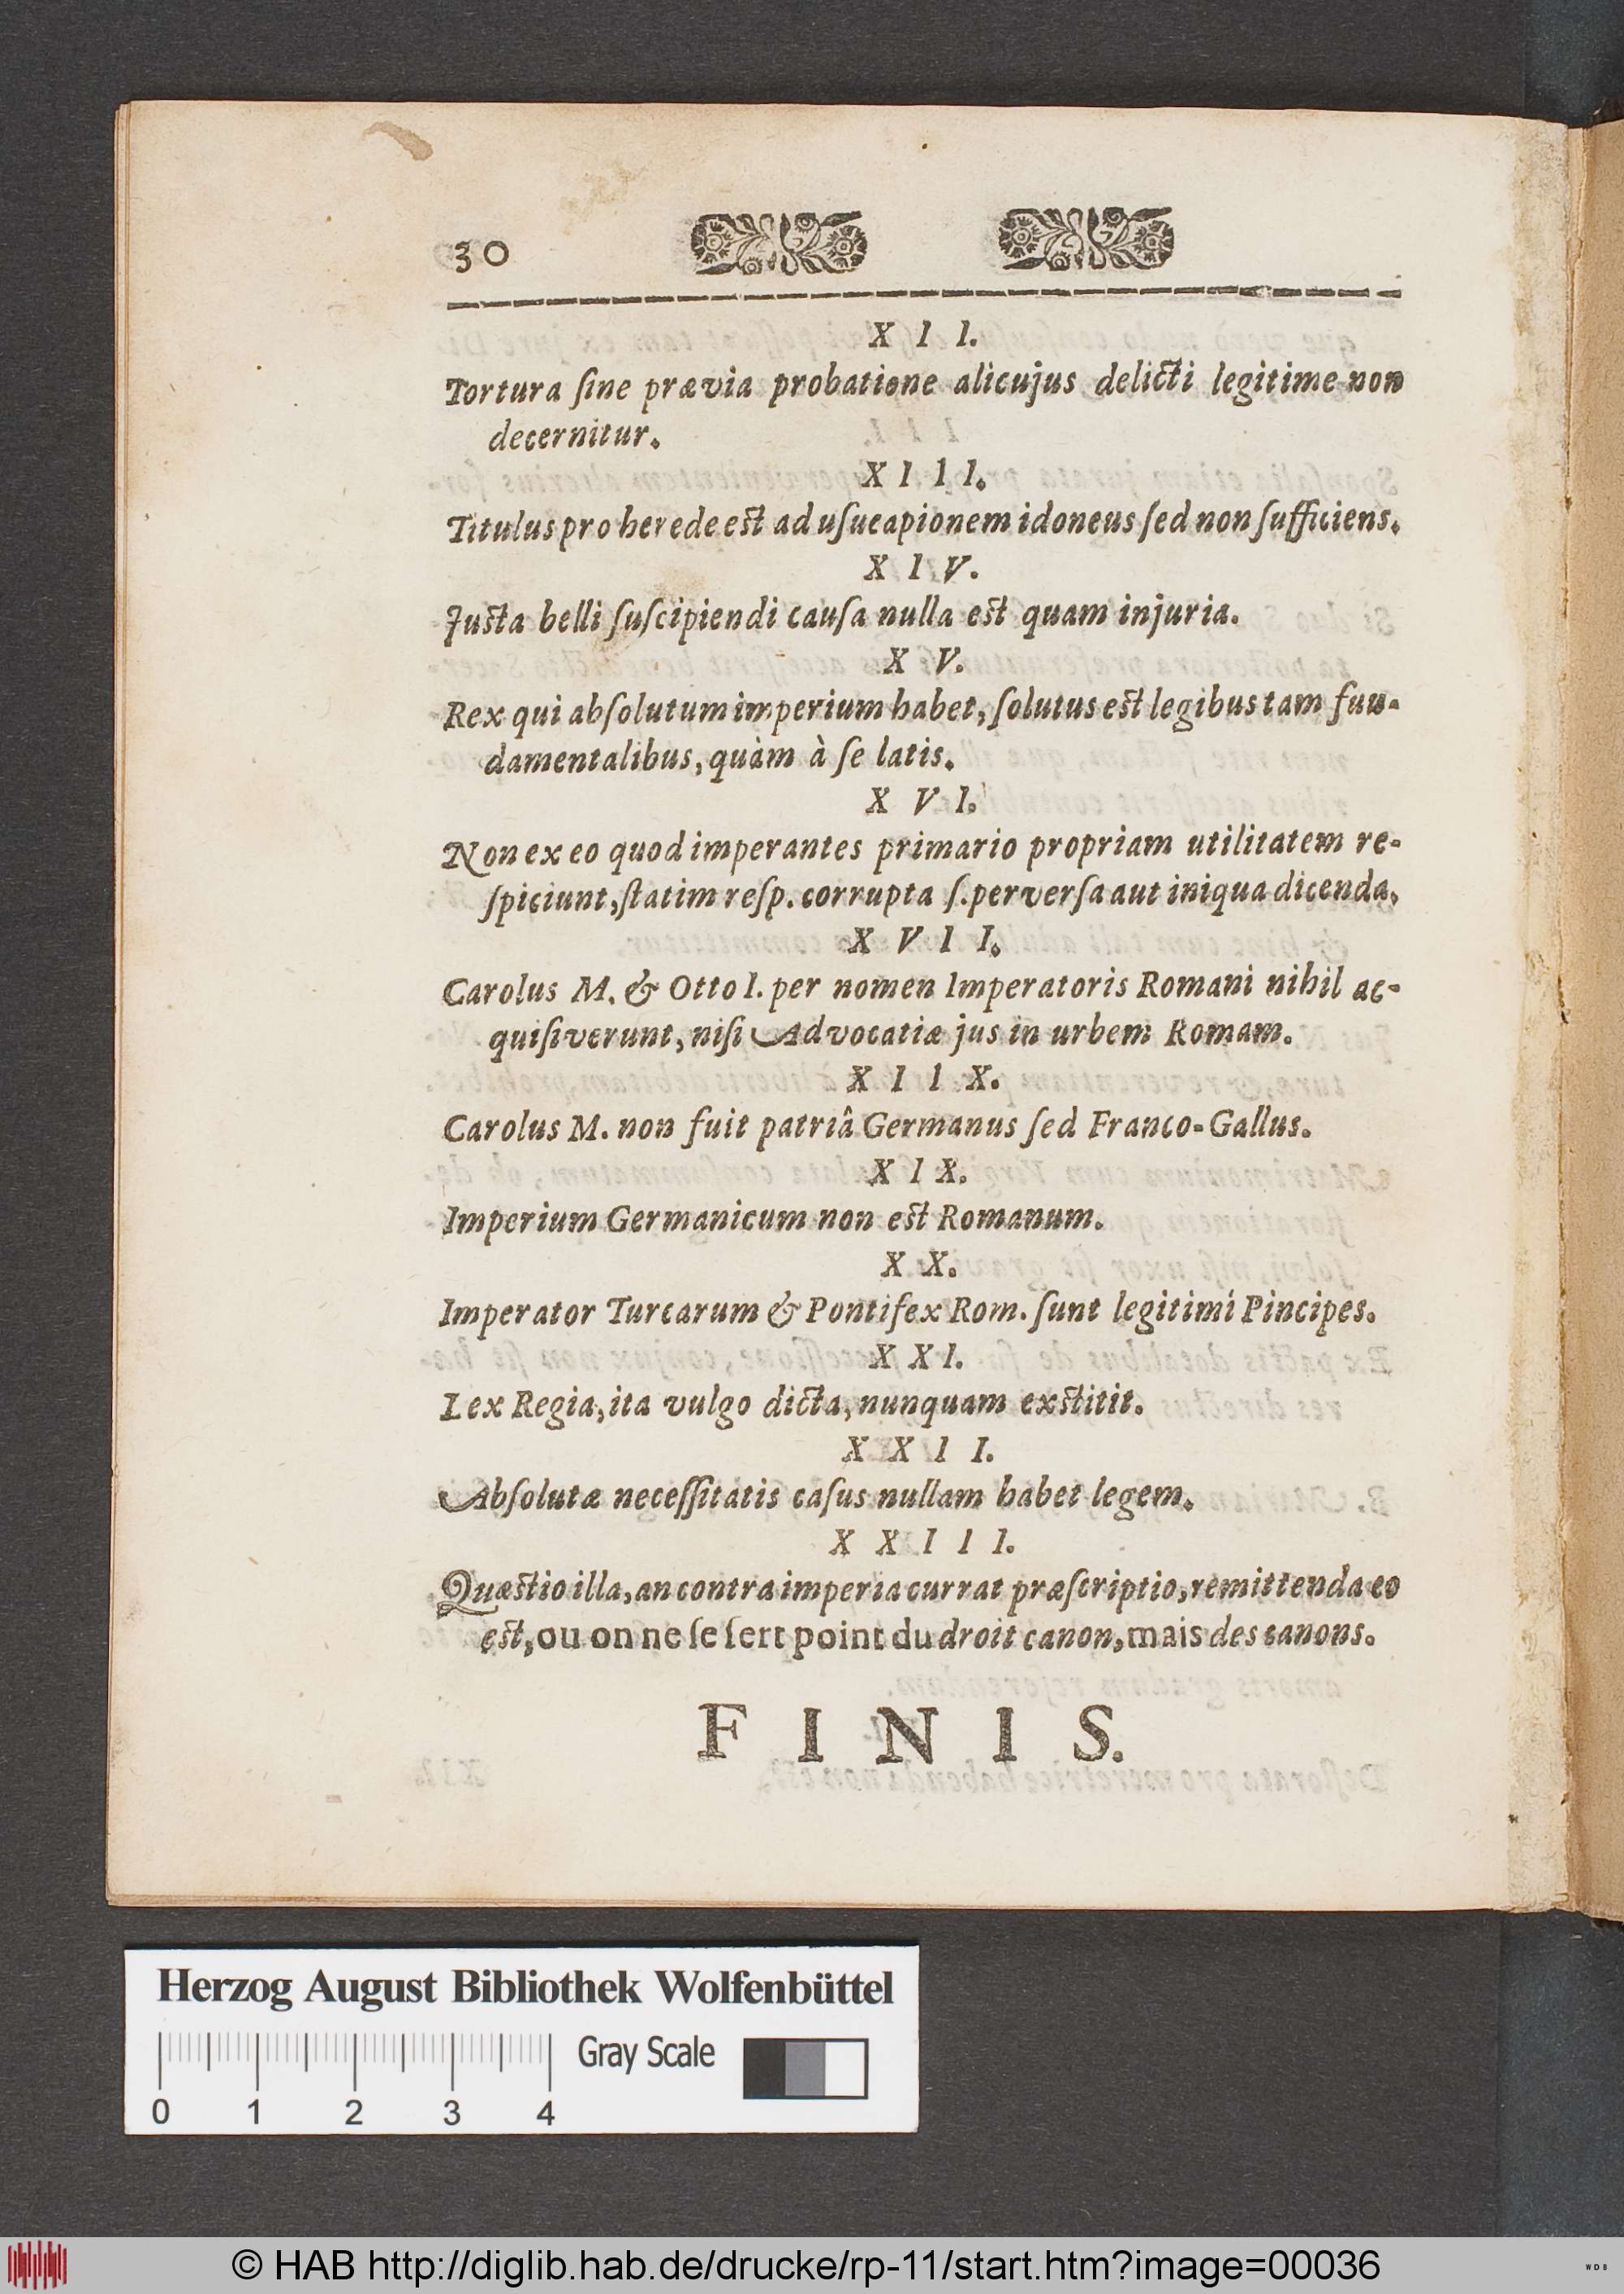 30
X I I.
Tortura ſine prævia probatione alicujus delicti legitime non
decernitur.
X I I I.
Titulus pro herede est ad uſucapionem idoneus ſed non ſufficiens.
X I V.
Justa belli ſuſcipiendi cauſa nulla est quam injuria.
X V.
Rex qui abſolutum imperium habet, ſolutus est legibus tam fuu-
damentalibus, quàm à ſe latis.
X V I.
Non ex eo quod imperantes primario propriam utilitatem re-
ſpiciunt, ſtatim reſp. corrupta ſ. perverſa aut iniqua dicenda.
X V I I.
Carolus M. & Otto I. per nomen Imperatoris Romani nihil ac-
quiſiverunt, niſi Advocatiæ jus in urbem Romam.
X I I X.
Carolus M. non fuit patriâ Germanus ſed Franco-Gallus.
X I X.
Imperium Germanicum non est Romanum.
X X.
Imperator Turcarum & Pontifex Rom. ſunt legitimi Pincipes.
X X I.
Lex Regia, ita vulgo dicta, nunquam exstitit.
X X I I.
Abſolutæ neceſſitatis caſus nullam habet legem.
X X I I I.
Quæstio illa, an contra imperia currat præſcriptio, remittenda eo
est, ou on ne ſe ſert point du droit canon, mais des canons.
F I N I S.
Herzog August Bibliothek Wolfenbüttel
Gray Scale
0 1 2 3 4
© HAB http://diglib.hab.de/drucke/rp-11/start.htm?image=00036
WDB